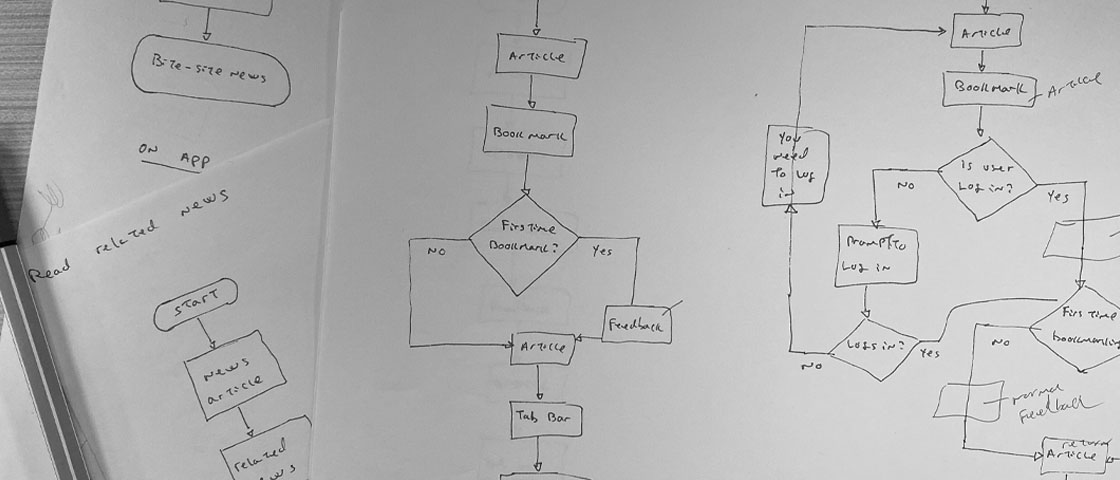 Bite-site news
ON APP
Read related news
Start
news
article
related
news
Article
Bookmark
First time
Bookmark?
NO
Yes
Feedback
Article
Tab Bar
Article
Bookmark
Article
You
need
To Log
in
Is user
Log in?
NO
Yes
Prompt To
Log in
Logs in?
NO
Yes
First time
bookmarking
NO
normal
Feedback
return
Article